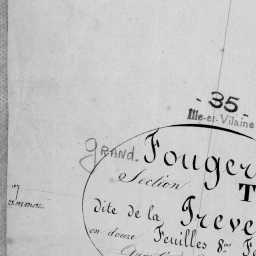 - 35 -
Ille-et-Vilaine
GRAND- Fouger
Section T
dite de la Treve
en douze Feuilles 8.me Fe